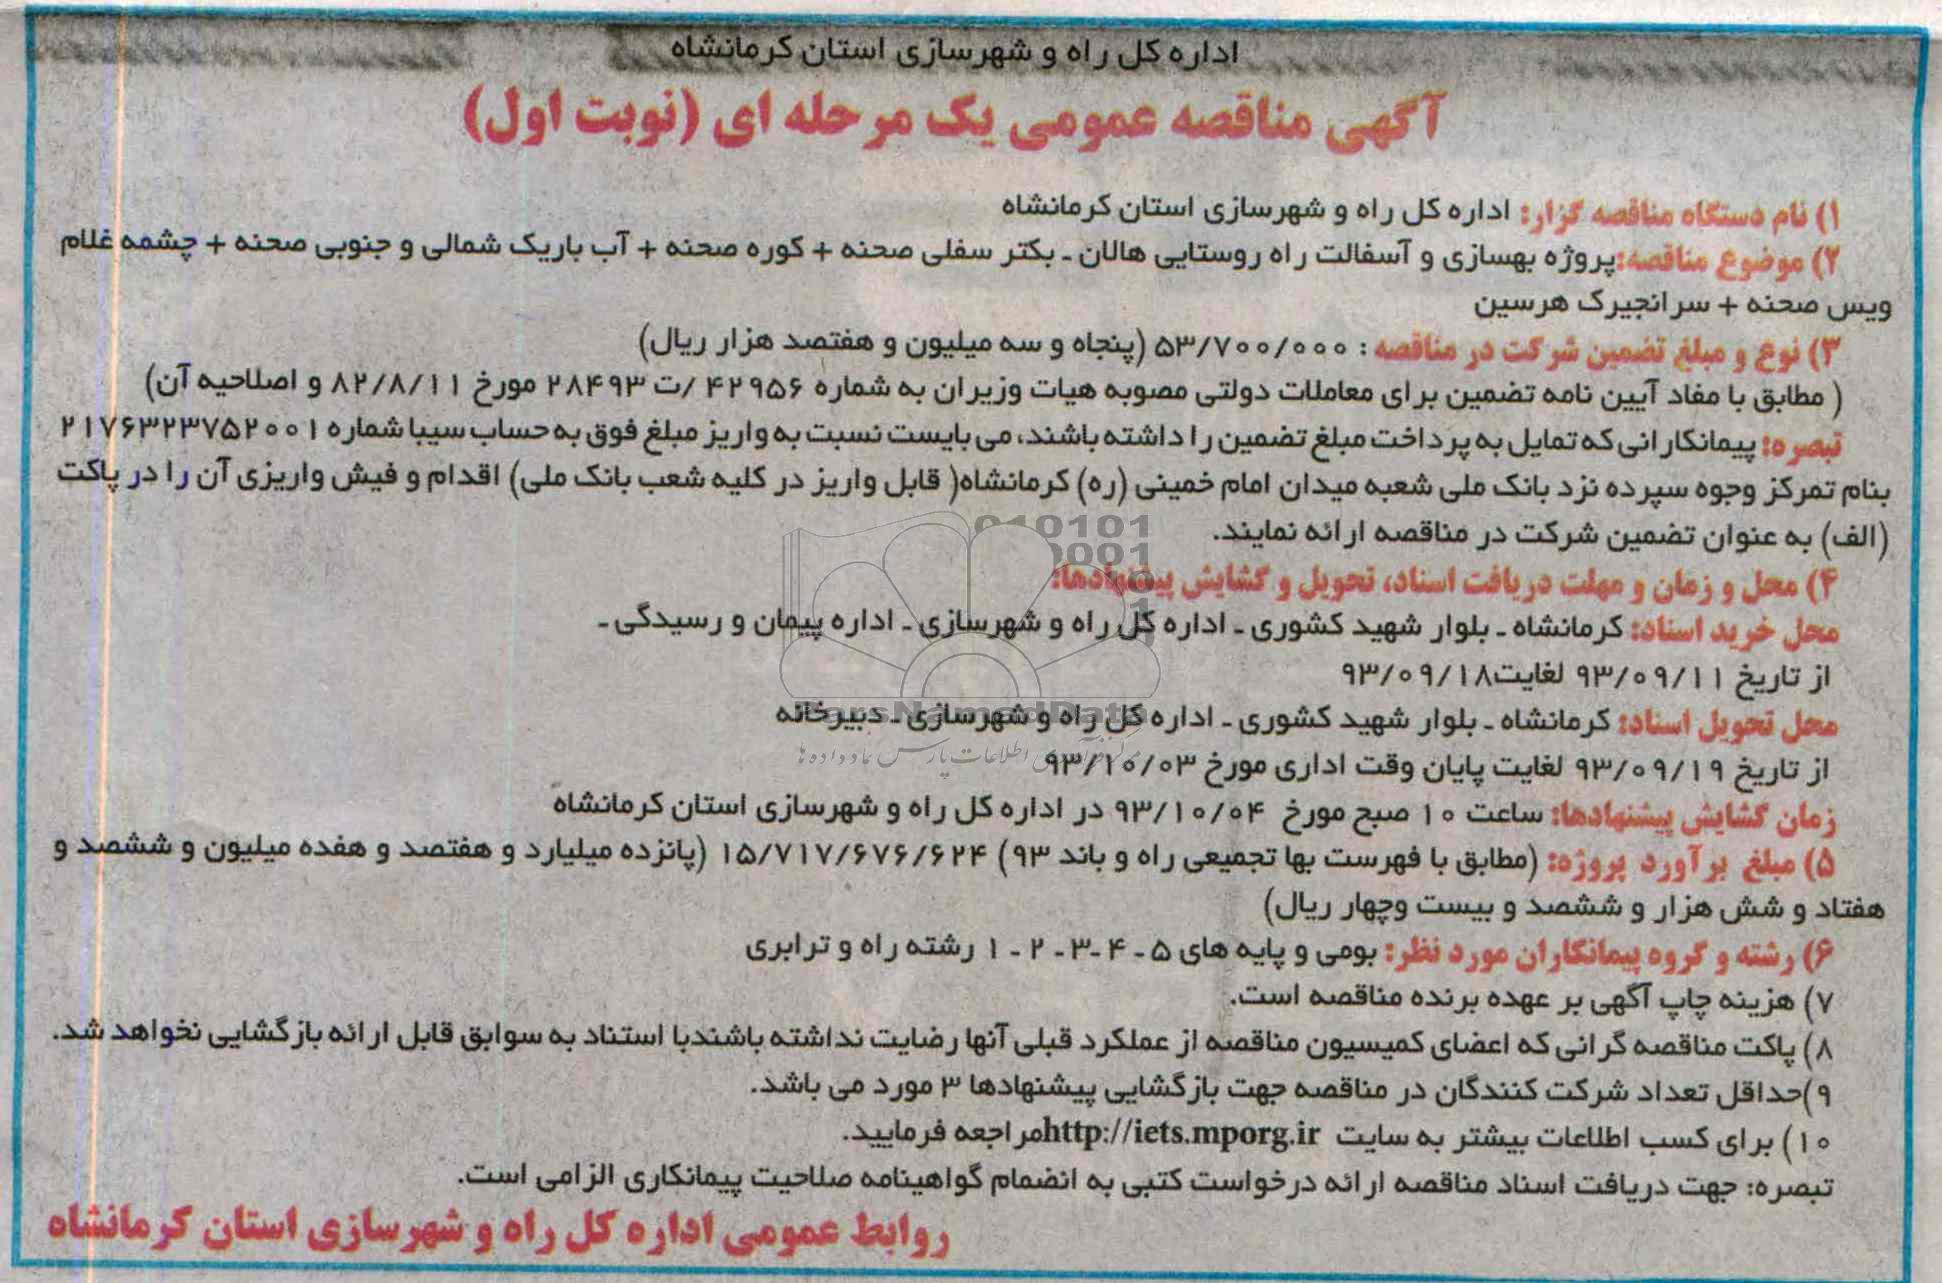 اداره کل راه و شهرسازی استان کرمانشاه
آگهی مناقصه عمومی یک مرحله ای (نوبت اول)
۱) نام دستگاه مناقصه گزار: اداره کل راه و شهرسازی استان کرمانشاه
۲) موضوع مناقصه:پروژه بهسازی و آسفالت راه روستایی هالان ـ بکتر سفلی صحنه + کوره صحنه + آب باریک شمالی و جنوبی صحنه + چشمه غلام
ویس صحنه + سرانجیرک هرسین
۳) نوع و مبلغ تضمین شرکت در مناقصه : ۵۳/۷۰۰/۰۰۰ (پنجاه و سه میلیون و هفتصد هزار ریال)
( مطابق با مفاد آیین نامه تضمین برای معاملات دولتی مصوبه هیات وزیران به شماره ۴۲۹۵۶ /ت ۲۸۴۹۳ مورخ ۸۲/۸/۱۱ و اصلاحیه آن)
تبصره: پیمانکارانی که تمایل به پرداخت مبلغ تضمین را داشته باشند، می بایست نسبت به واریز مبلغ فوق به حساب سیبا شماره ۲۱۷۶۳۲۳۷۵۲۰۰۱
بنام تمرکز وجوه سپرده نزد بانک ملی شعبه میدان امام خمینی (ره) کرمانشاه( قابل واریز در کلیه شعب بانک ملی) اقدام و فیش واریزی آن را در پاکت
(الف) به عنوان تضمین شرکت در مناقصه ارائه نمایند.
۴) محل و زمان و مهلت دریافت اسناد، تحویل و گشایش پیشنهادها:
محل خرید اسناد: کرمانشاه ـ بلوار شهید کشوری ـ اداره کل راه و شهرسازی ـ اداره پیمان و رسیدگی ـ
از تاریخ ۹۳/۰۹/۱۱ لغایت۹۳/۰۹/۱۸
محل تحویل اسناد: کرمانشاه ـ بلوار شهید کشوری ـ اداره کل راه و شهرسازی ـ دبیرخانه
ParsNamadData
مرکز فرآوری اطلاعات پارس نماد داده ها
از تاریخ ۹۳/۰۹/۱۹ لغایت پایان وقت اداری مورخ ۹۳/۱۰/۰۳
زمان گشایش پیشنهادها: ساعت ۱۰ صبح مورخ ۹۳/۱۰/۰۴ در اداره کل راه و شهرسازی استان کرمانشاه
۵) مبلغ برآورد پروژه: (مطابق با فهرست بها تجمیعی راه و باند ۹۳) ۱۵/۷۱۷/۶۷۶/۶۲۴ (پانزده میلیارد و هفتصد و هفده میلیون و ششصد و
هفتاد و شش هزار و ششصد و بیست وچهار ریال)
۶) رشته و گروه پیمانکاران مورد نظر: بومی و پایه های ۵ ـ ۴ ـ۳ ـ ۲ ـ ۱ رشته راه و ترابری
۷) هزینه چاپ آگهی بر عهده برنده مناقصه است.
۸) پاکت مناقصه گرانی که اعضای کمیسیون مناقصه از عملکرد قبلی آنها رضایت نداشته باشندبا استناد به سوابق قابل ارائه بازگشایی نخواهد شد.
۹)حداقل تعداد شرکت کنندگان در مناقصه جهت بازگشایی پیشنهادها ۳ مورد می باشد.
۱۰) برای کسب اطلاعات بیشتر به سایت http://iets.mporg.irمراجعه فرمایید.
تبصره: جهت دریافت اسناد مناقصه ارائه درخواست کتبی به انضمام گواهینامه صلاحیت پیمانکاری الزامی است.
روابط عمومی اداره کل راه و شهرسازی استان کرمانشاه